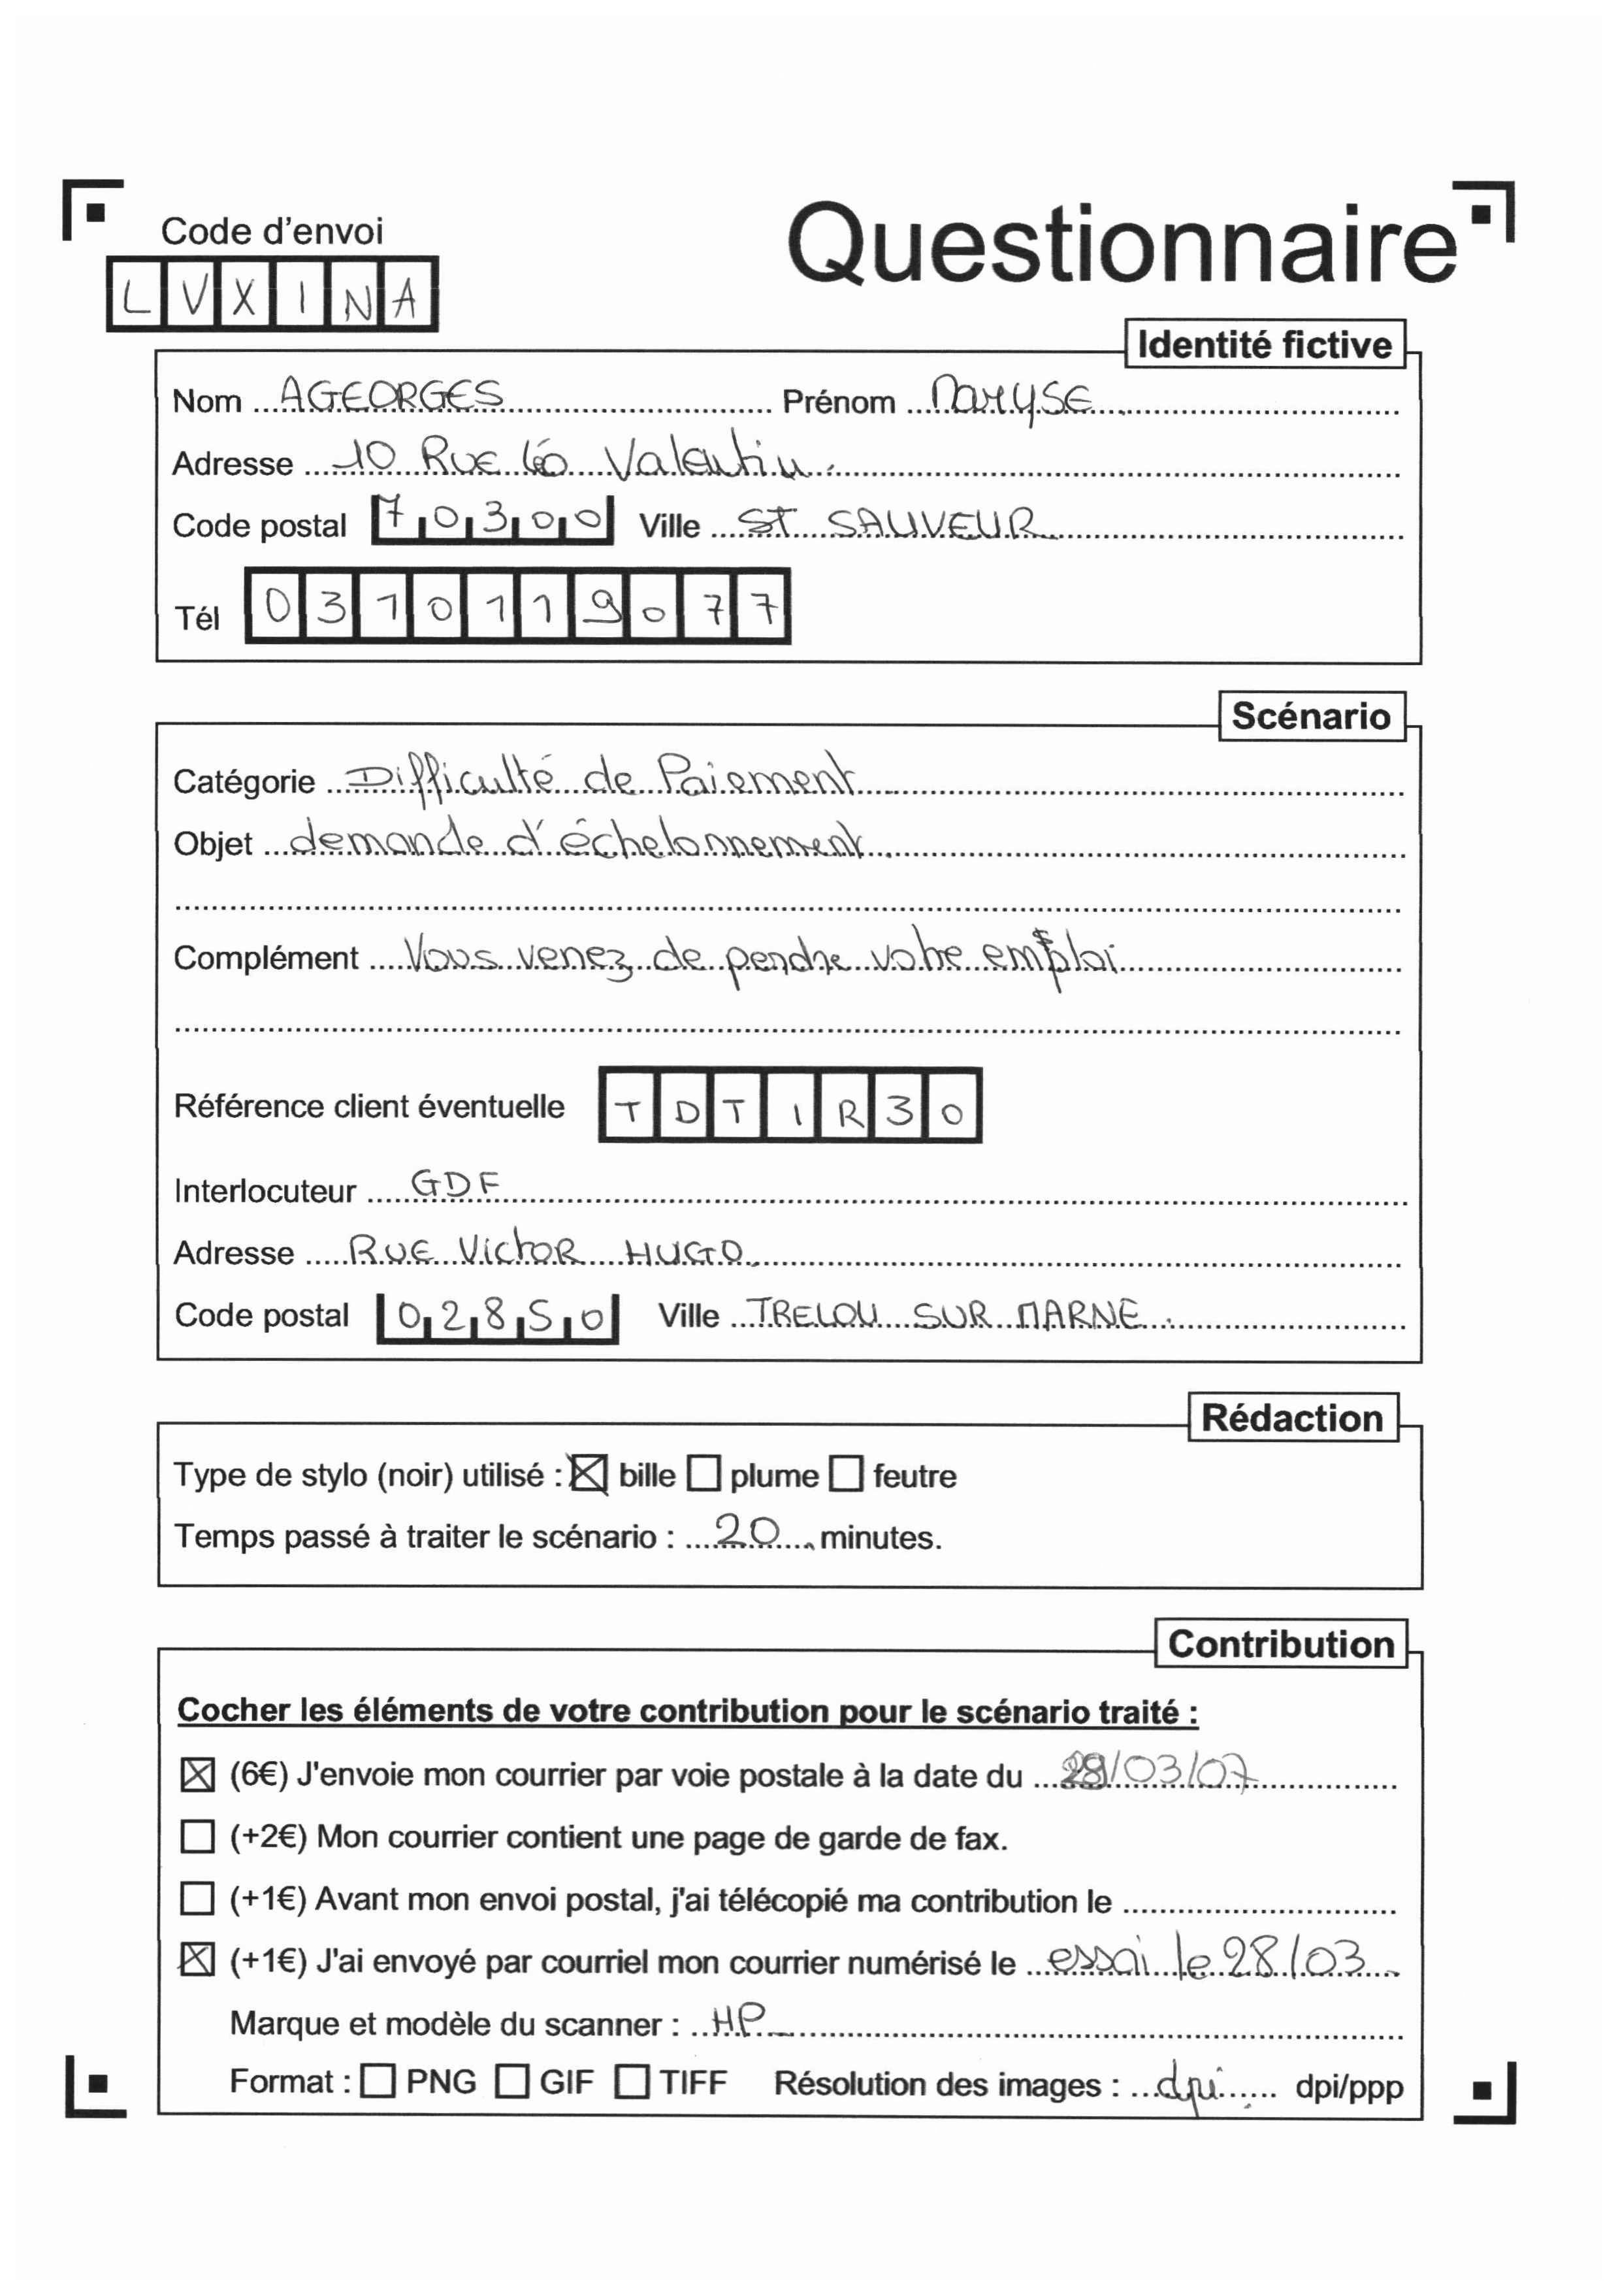 Questionnaire
Code d'envoi
LVXINA
Identité fictive
Nom AGEORGES Prénom Maryse
Adresse 10 Rue Léo Valentin
Code postal 70300 Ville ST SAUVEUR
Tél 0310119077
Scénario
Catégorie Difficulté de Paiement
Objet demande d'échelonnement
Complément Vous venez de perdre votre emploi
Référence client éventuelle TDTIR30
Interlocuteur GDF
Adresse RUE Victor HUGO
Code postal 02850 Ville TRELOU SUR MARNE
Rédaction
Type de stylo (noir) utilisé : bille plume feutre
Temps passé à traiter le scénario : 20 minutes.
Contribution
Cocher les éléments de votre contribution pour le scénario traité :
(6€) J'envoie mon courrier par voie postale à la date du 29/03/07
(+2€) Mon courrier contient une page de garde de fax.
(+1€) Avant mon envoi postal, j'ai télécopié ma contribution le
(+1€) J'ai envoyé par courriel mon courrier numérisé le essai le 28/03
Marque et modèle du scanner : HP
Format : PNG GIF TIFF Résolution des images : dpi dpi/ppp